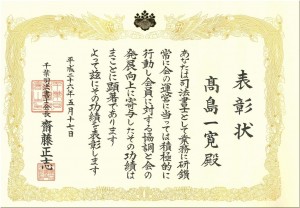 表彰状
髙島一寛殿
あなたは司法書士として業務に研鑽
常に会の運営に当っては積極的に
行動し会員に対する協調と会の
発展向上に寄与したその功績は
まことに顕著であります
よって茲にその功績を表彰します
平成二十六年五月十七日
千葉司法書士会会長 齋藤正志